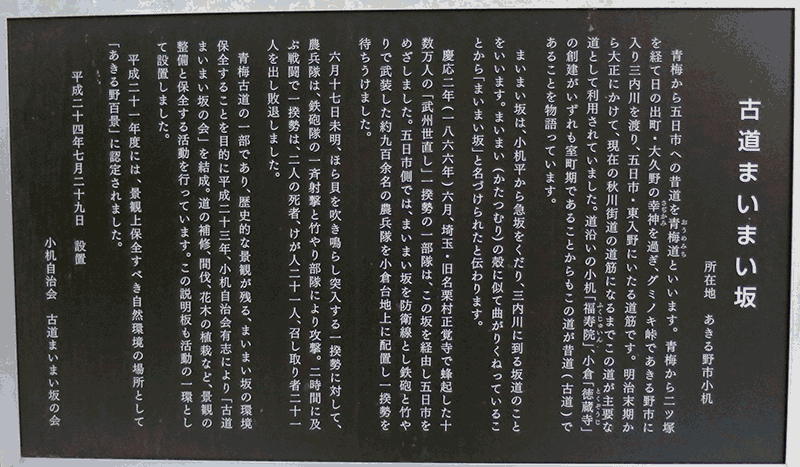 古道まいまい坂
所在地　あきる野市小机
青梅から五日市への昔道を青梅道といいます。青梅から二ツ塚
を経て日の出町・大久野の幸神を過ぎ、グミノキ峠であきる野市に
入り三内川を渡り、五日市・東入野にいたる道筋です。明治末期か
ら大正にかけて、現在の秋川街道の道筋になるまでこの道が主要な
道として利用されていました。道沿いの小机「福寿院」、小倉「徳蔵寺」
の創建がいずれも室町期であることからもこの道が昔道（古道）で
あることを物語っています。
まいまい坂は、小机平から急坂をくだり、三内川に到る坂道のこと
をいいます。まいまい（かたつむり）の殻に似て曲がりくねっているこ
とから「まいまい坂」と名づけられたと伝わります。
慶応二年（一八六六年）六月、埼玉・旧名栗村正覚寺で蜂起した十
数万人の「武州世直し」一揆勢の一部隊は、この坂を経由し五日市を
めざしました。五日市側では、まいまい坂を防衛線とし鉄砲と竹や
りで武装した約九百余名の農兵隊を小倉台地上に配置し一揆勢を
待ちうけました。
六月十七日未明、ほら貝を吹き鳴らし突入する一揆勢に対して、
農兵隊は、鉄砲隊の一斉射撃と竹やり部隊により攻撃。二時間に及
ぶ戦闘で一揆勢は、二人の死者、けが人二十一人、召し取り者二十一
人を出し敗退しました。
青梅古道の一部であり、歴史的な景観が残る、まいまい坂の環境
保全することを目的に平成二十三年、小机自治会有志により「古道
まいまい坂の会」を結成。道の補修、間伐、花木の植栽など、景観の
整備と保全する活動を行っています。この説明板も活動の一環とし
て設置しました。
平成二十一年度には、景観上保全すべき自然環境の場所として
「あきる野百景」に認定されました。
平成二十四年七月二十九日　設置
小机自治会　古道まいまい坂の会